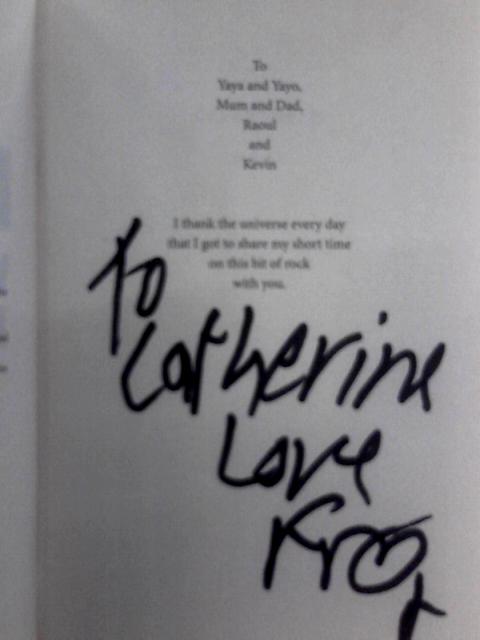 To
Yaya and Yayo,
Mum and Dad,
Raoul
and
Kevin
I thank the universe every day
that I got to share my short time
on this bit of rock
with you.
To
Catherine
Love